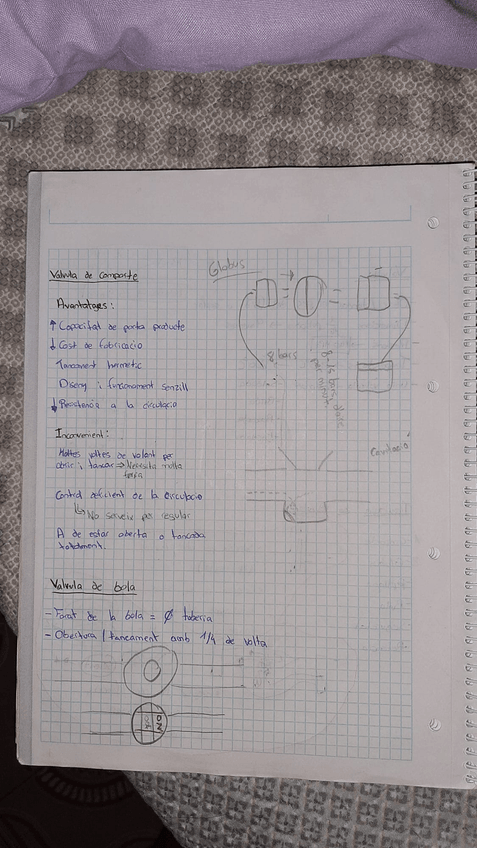 Valvula de comporta
Globus
Avantatges:
↑ Capacitat de porta producte
↓ Cost de fabricacio
Tancament hermetic
Diseny i funcionament senzill
↓ Resistencia a la circulacio
8 bars
Inconvenient:
Moltes voltes de volant per
obrir i tancar => Necessita molta
força
Cavitació
Control deficient de la circulacio
↳ No serveix per regular
A de estar oberta o tancada
totalment.
Valvula de bola
- Forat de la bola = Ø tuberia
- Obertura / tancament amb 1/4 de volta